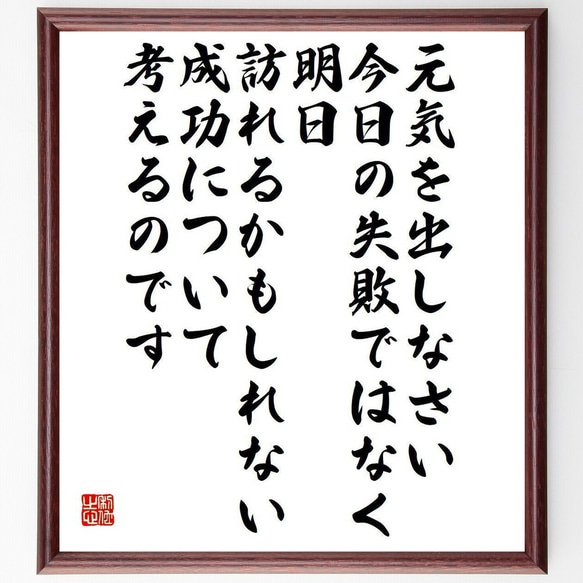 元気を出しなさい
今日の失敗ではなく
明日
訪れるかもしれない
成功について
考えるのです